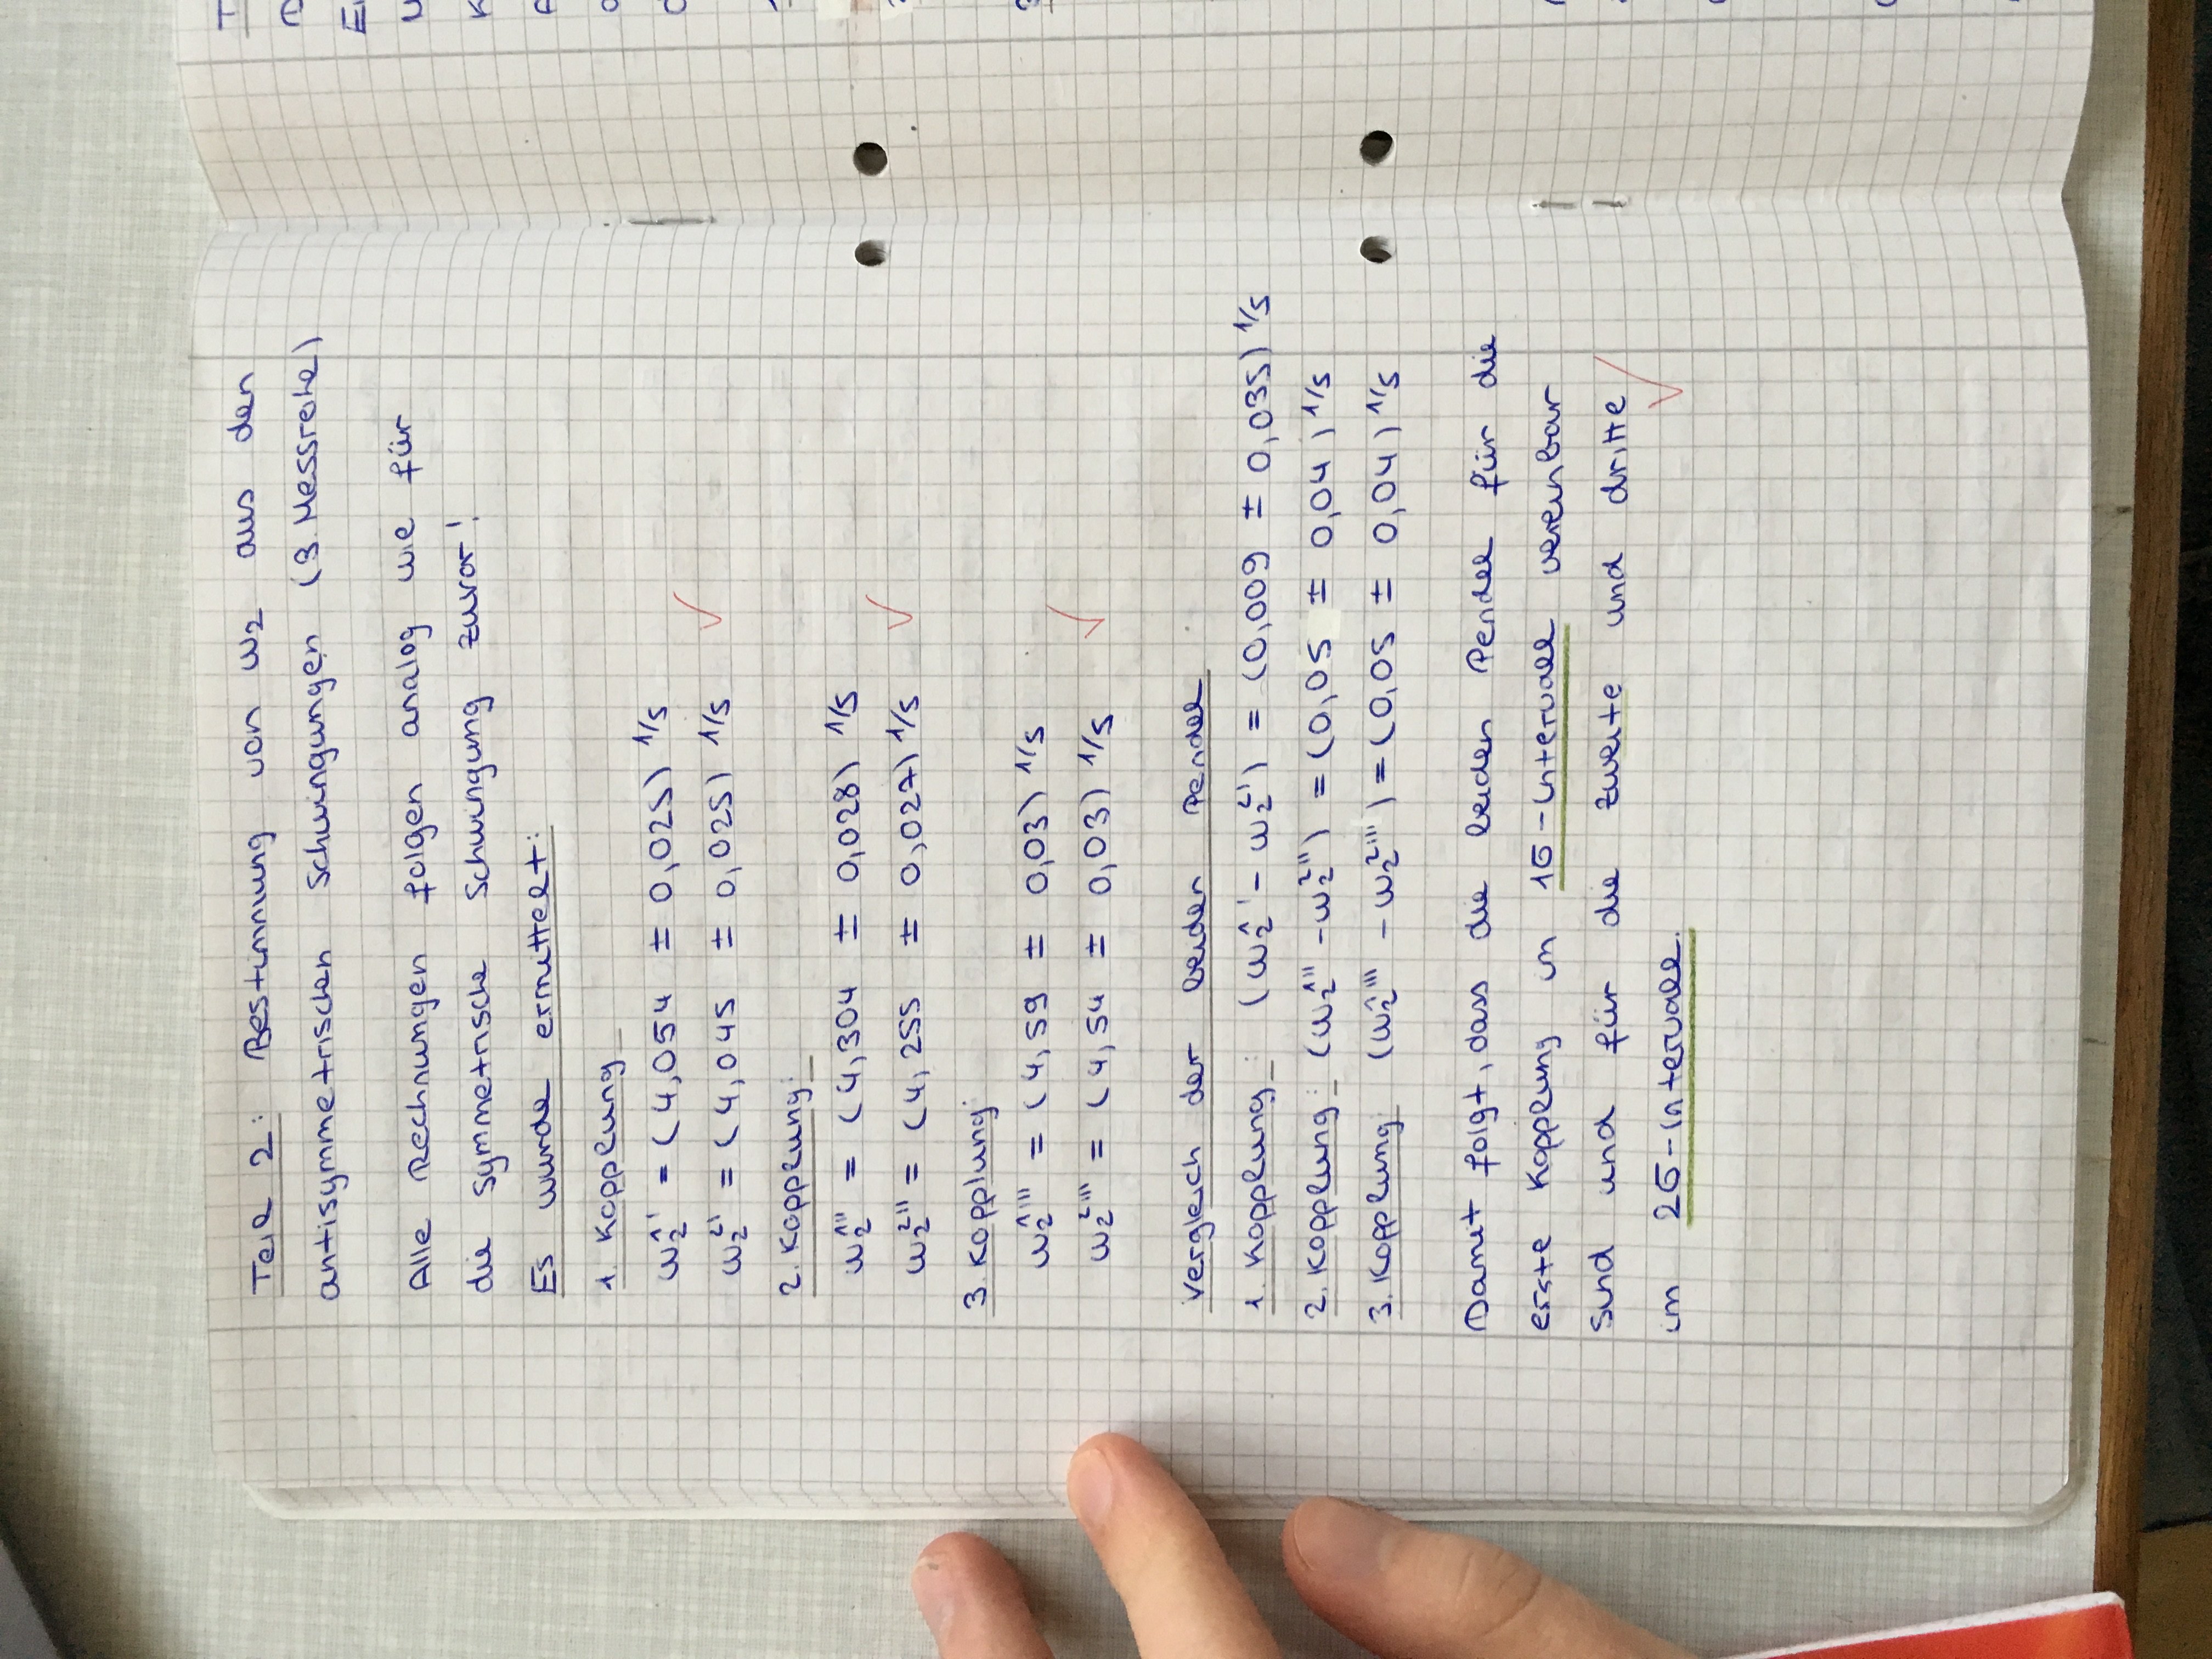 Teil 2: Bestimmung von ω₂ aus den
antisymmetrischen Schwingungen (3. Messreihe)
Alle Rechnungen folgen analog wie für
die symmetrische Schwingung zuvor!
Es wurde ermittelt:
1. Kopplung
ω₂¹' = (4,054 ± 0,025) 1/s
ω₂²' = (4,045 ± 0,025) 1/s
2. Kopplung:
ω₂¹'' = (4,304 ± 0,028) 1/s
ω₂²'' = (4,255 ± 0,027) 1/s
3. Kopplung
ω₂¹''' = (4,59 ± 0,03) 1/s
ω₂²''' = (4,54 ± 0,03) 1/s
Vergleich der beiden Pendel
1. Kopplung: (ω₂¹' - ω₂²') = (0,009 ± 0,035) 1/s
2. Kopplung: (ω₂¹'' - ω₂²'') = (0,05 ± 0,04) 1/s
3. Kopplung: (ω₂¹''' - ω₂²''') = (0,05 ± 0,04) 1/s
Damit folgt, dass die beiden Pendel für die
erste Kopplung im 1σ-Intervall vereinbar
sind und für die zweite und dritte
im 2σ-Intervall.